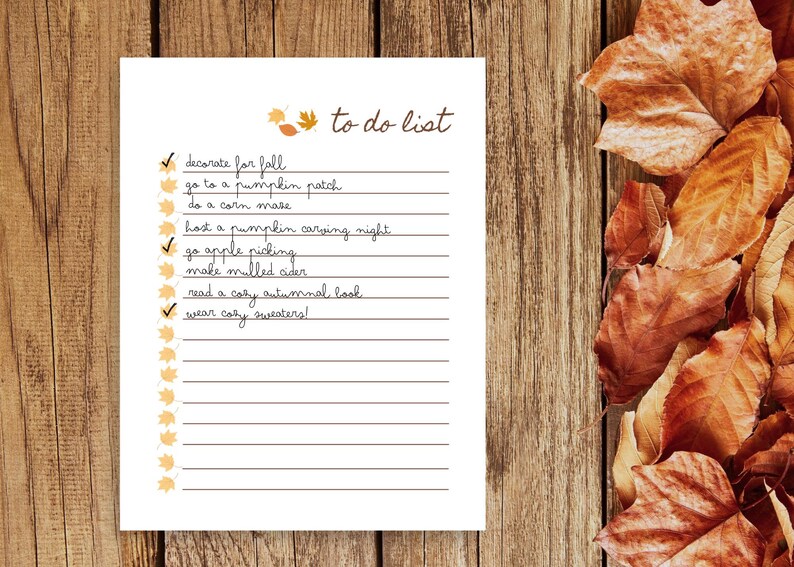 to do list
decorate for fall
go to a pumpkin patch
do a corn maze
host a pumpkin carving night
go apple picking
make mulled cider
read a cozy autumnal book
wear cozy sweaters!